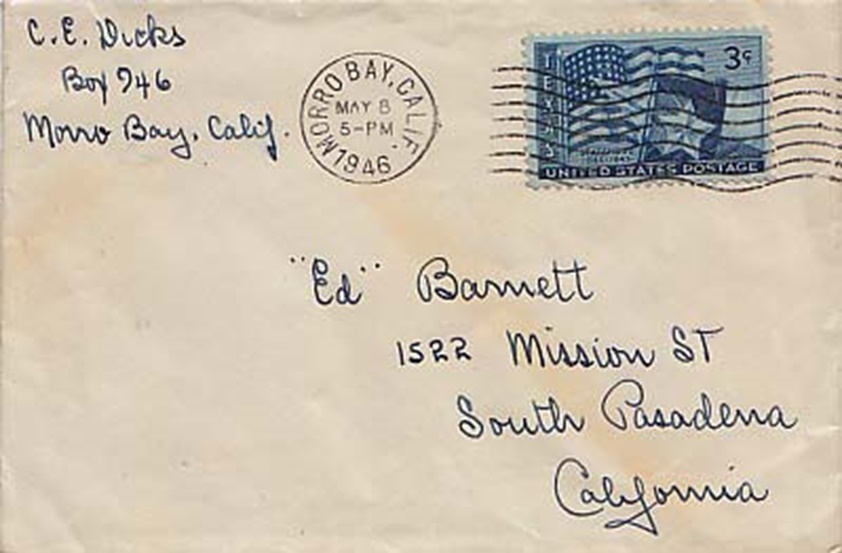 C. E. Dicks
Box 946
Morro Bay, Calif.
MORRO BAY, CALIF.
MAY 8
5-PM
1946
3¢
TEXAS
UNITED STATES POSTAGE
"Ed" Barnett
1522 Mission ST
South Pasadena
California